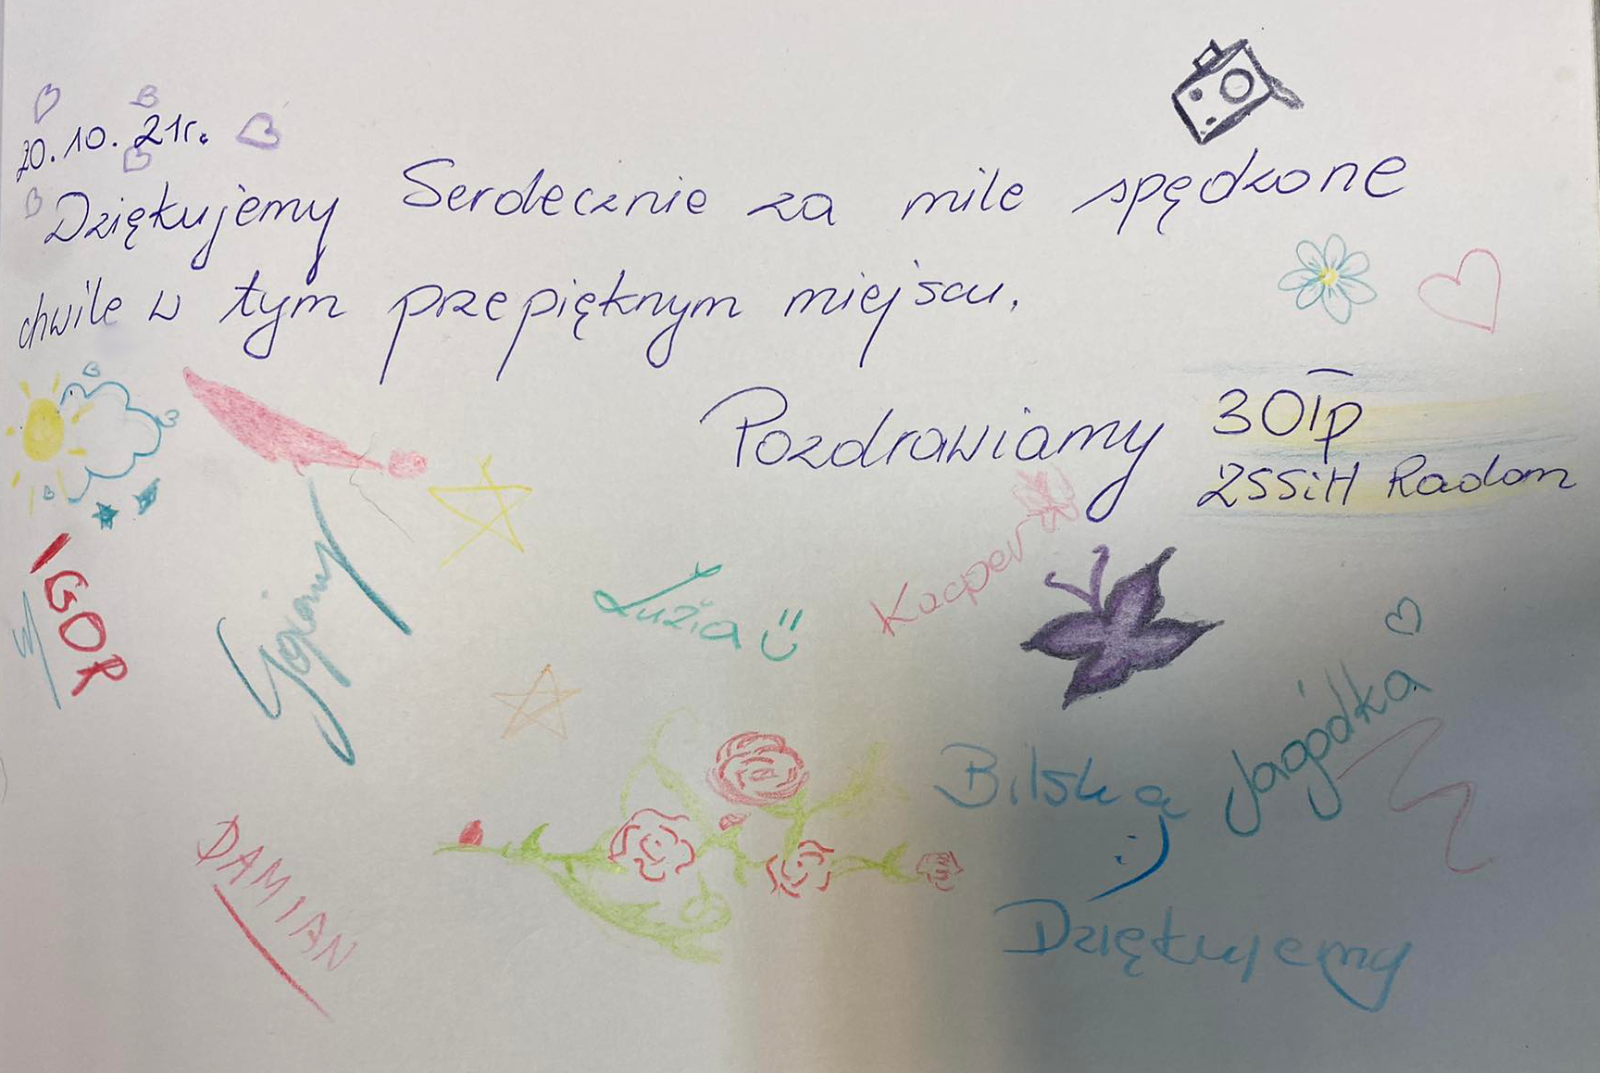 20.10.21r.
Dziękujemy Serdecznie za mile spędzone
chwile w tym przepięknym miejscu.
Pozdrawiamy
2SSiH Radom
IGOR
Luzia
Kacper
Jagódka
Bilska
:)
DAMIAN
Dziękujemy